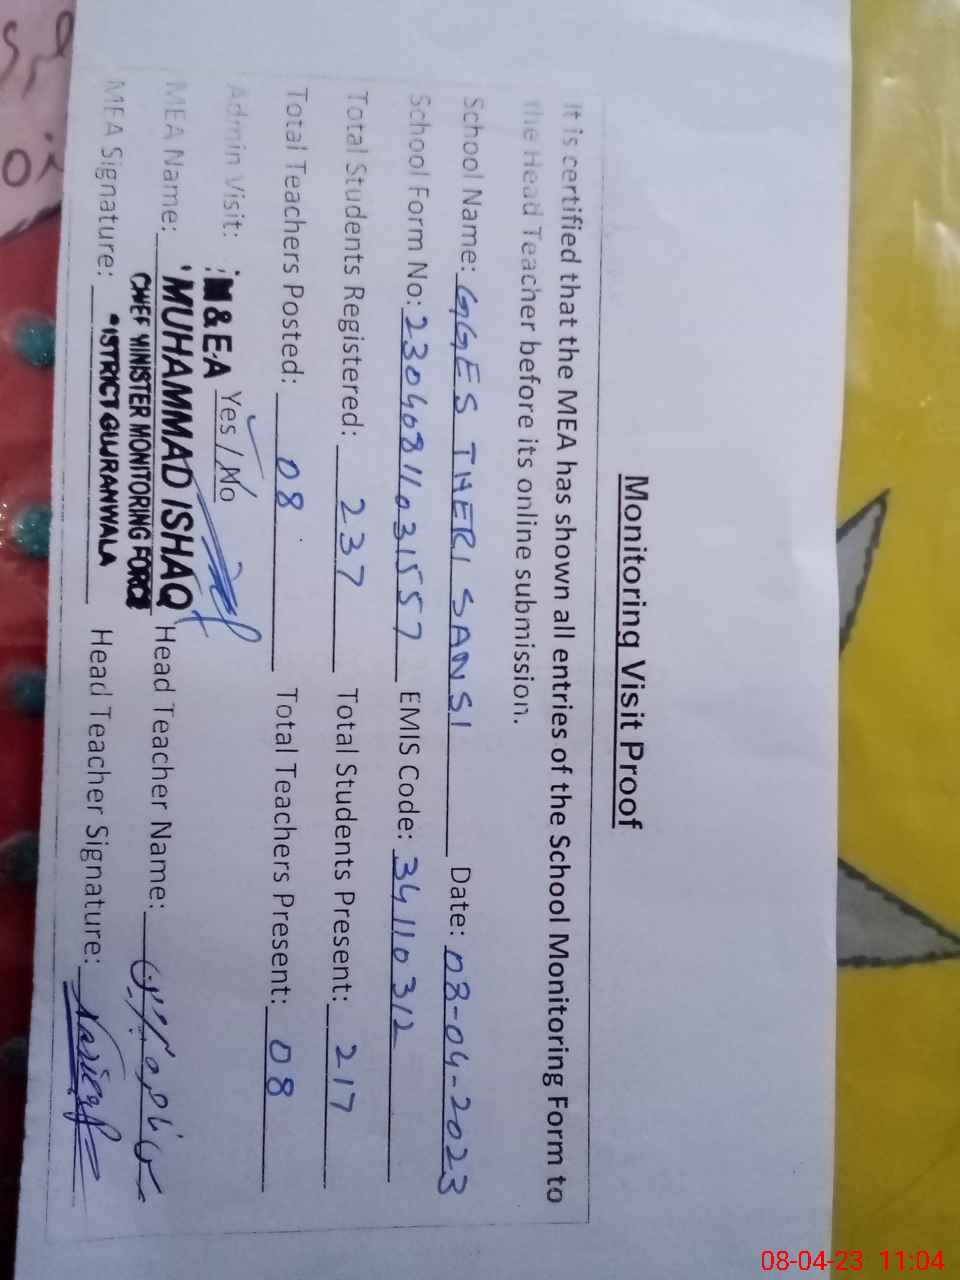 Monitoring Visit Proof
It is certified that the MEA has shown all entries of the School Monitoring Form to
the Head Teacher before its online submission.
School Name: GGES THERI SANSI Date: 08-04-2023
School Form No: 23040811031557 EMIS Code: 34110312
Total Students Registered: 237 Total Students Present: 217
Total Teachers Posted: 08 Total Teachers Present: 08
Admin Visit: Yes / No
M&E.A
MEA Name: MUHAMMAD ISHAQ Head Teacher Name:
CHIEF MINISTER MONITORING FORCE
MEA Signature: Head Teacher Signature:
ISTRICT GUJRANWALA
08-04-23 11:04